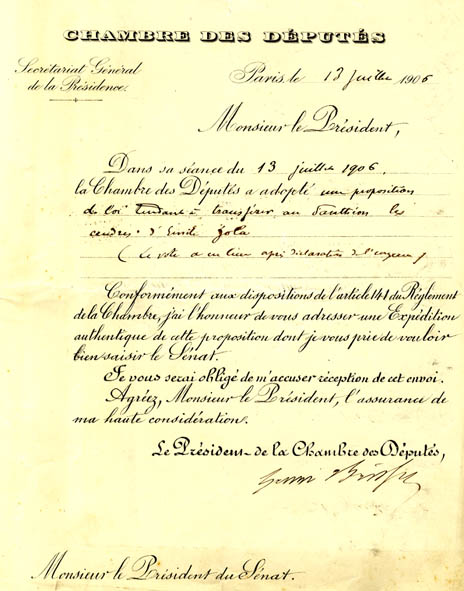 CHAMBRE DES DÉPUTÉS
Secrétariat Général
de la Présidence.
Paris, le 13 juillet 1906
Monsieur le Président,
Dans sa séance du 13 juillet 1906,
la Chambre des Députés a adopté une proposition
de loi tendant à transférer au Panthéon les
cendres d'Emile Zola
(Le vote a eu lieu après déclaration de l'urgence)
Conformément aux dispositions de l'article 141 du Règlement
de la Chambre, j'ai l'honneur de vous adresser une Expédition
authentique de cette proposition dont je vous prie de vouloir
bien saisir le Sénat.
Je vous serai obligé de m'accuser réception de cet envoi.
Agréez, Monsieur le Président, l'assurance de
ma haute considération.
Le Président de la Chambre des Députés,
Henri Brisson
Monsieur le Président du Sénat.